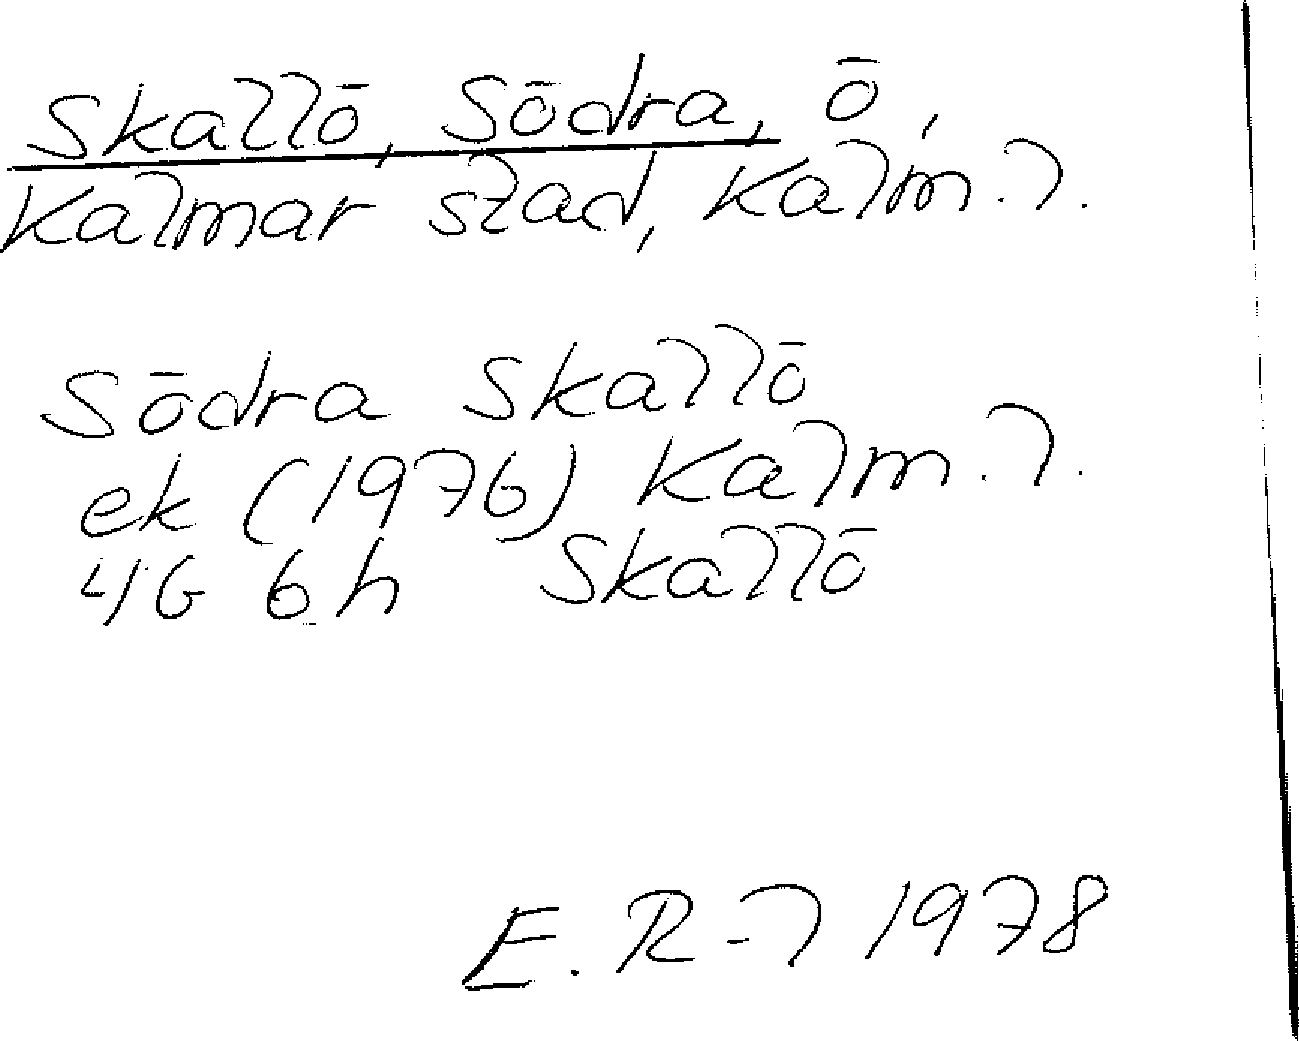 Skallö, Södra, ö,
Kalmar stad, Kalm. l.
Södra Skallö
ek (1976) Kalm. l.
4G 6h Skallö
E. R-l 1978